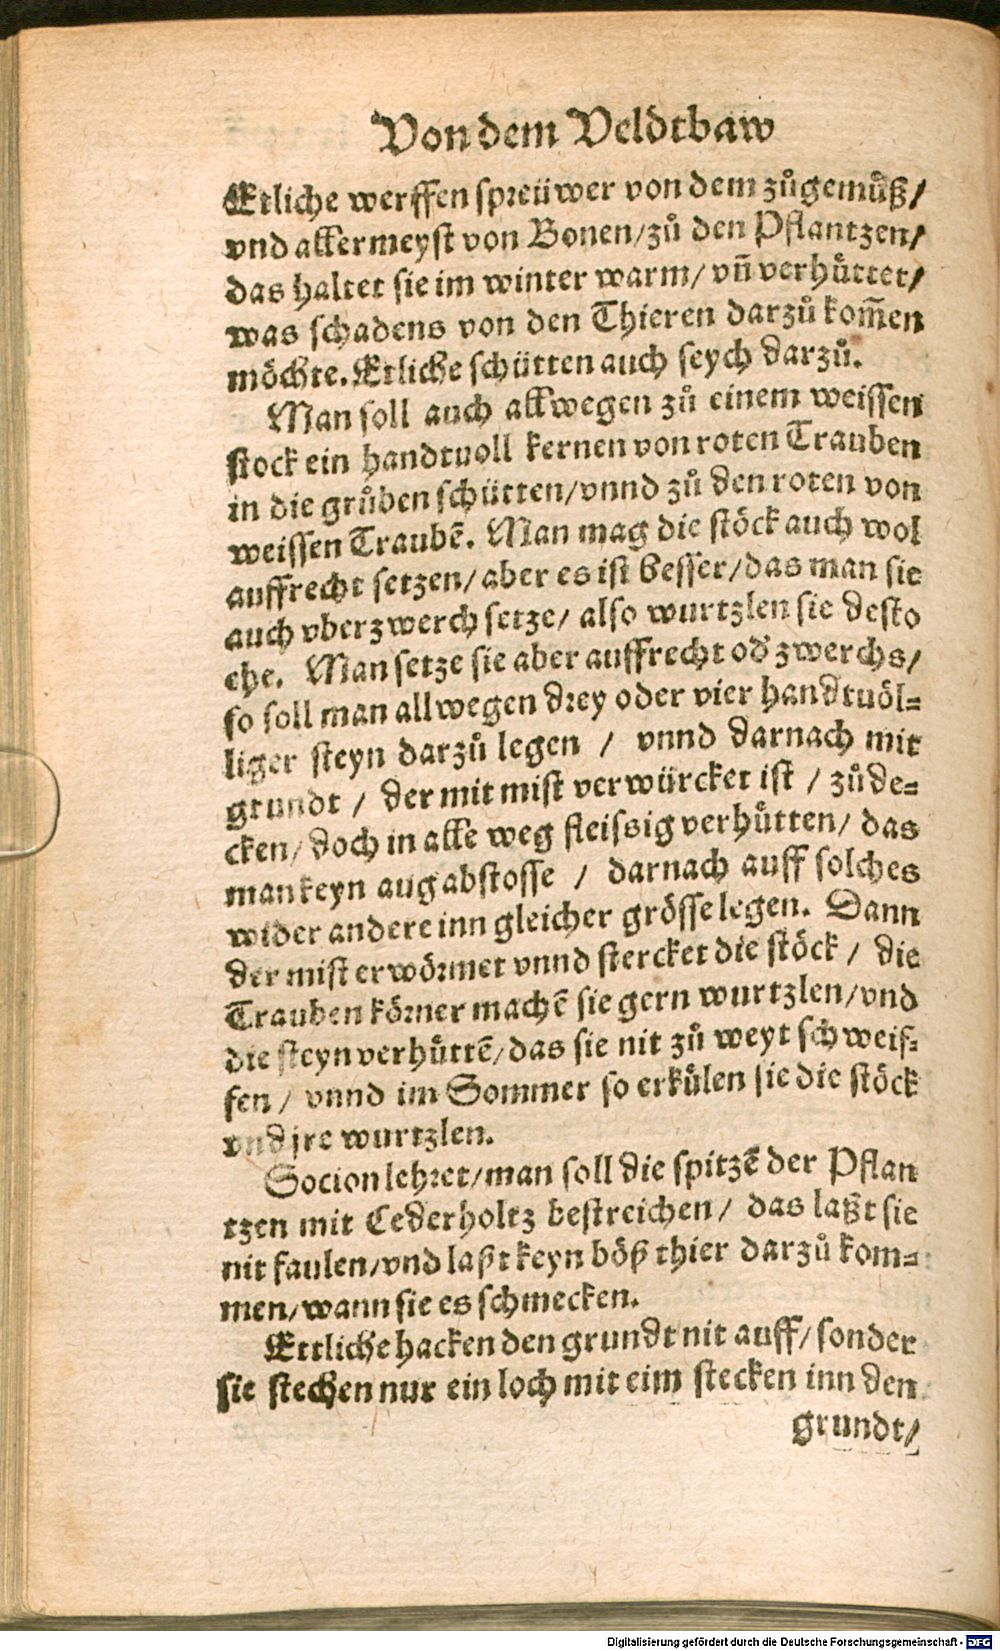 Von dem Veldtbaw
Etliche werffen spreüwer von dem zůgemůß/
vnd allermeyst von Bonen/zů den Pflantzen/
das haltet sie im winter warm/ vñ verhůttet/
was schadens von den Thieren darzů kom̃en
möchte. Etliche schütten auch seych darzů.
Man soll auch allwegen zů einem weissen
stock ein handtuoll kernen von roten Trauben
in die grůben schütten/vnnd zů den roten von
weissen Traubẽ. Man mag die stöck auch wol
auffrecht setzen/ aber es ist besser/das man sie
auch vberzwerch setze/ also wurtzlen sie desto
ehe. Man setze sie aber auffrecht od' zwerchs/
so soll man allwegen drey oder vier handtuöl=
liger steyn darzů legen / vnnd darnach mit
grundt / der mit mist verwürcket ist / zůde=
cken/ doch in alle weg fleissig verhůtten/ das
man keyn aug abstosse / darnach auff solches
wider andere inn gleicher grösse legen. Dann
der mist erwörmet vnnd stercket die stöck / die
Trauben körner machẽ sie gern wurtzlen/vnd
die steyn verhůttẽ/das sie nit zů weyt schweif=
fen / vnnd im Sommer so erkůlen sie die stöck
vnd jre wurtzlen.
Socion lehret/man soll die spitzẽ der Pflan
tzen mit Cederholtz bestreichen/ das laßt sie
nit faulen/vnd laßt keyn böß thier darzů kom=
men/wann sie es schmecken.
Ettliche hacken den grundt nit auff/ sonder
sie stechen nur ein loch mit eim stecken inn den
grundt/
Digitalisierung gefördert durch die Deutsche Forschungsgemeinschaft - DFG